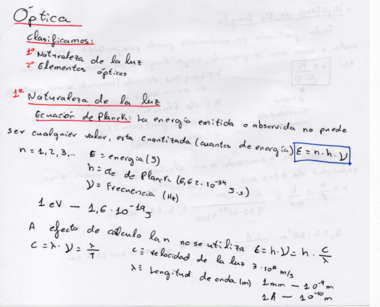 Óptica
Clasificamos:
1º Naturaleza de la luz
2º Elementos ópticos
1º Naturaleza de la luz
Ecuación de Planck: La energía emitida o absorvida no puede
ser cualquier valor, esta cuantizada (cuantos de energía) E = n·h·ν
n = 1,2,3,.. E = energía (J)
h = cte de Planck (6,62·10⁻³⁴ J·s)
ν = Frecuencia (Hz)
1 eV — 1,6·10⁻¹⁹ J
A efecto de cálculo la n no se utiliza E = h·ν = h· c/λ
C = λ·ν = λ/T c = velocidad de la luz 3·10⁸ m/s
λ = Longitud de onda (m) 1 nm — 10⁻⁹ m
1 Å — 10⁻¹⁰ m